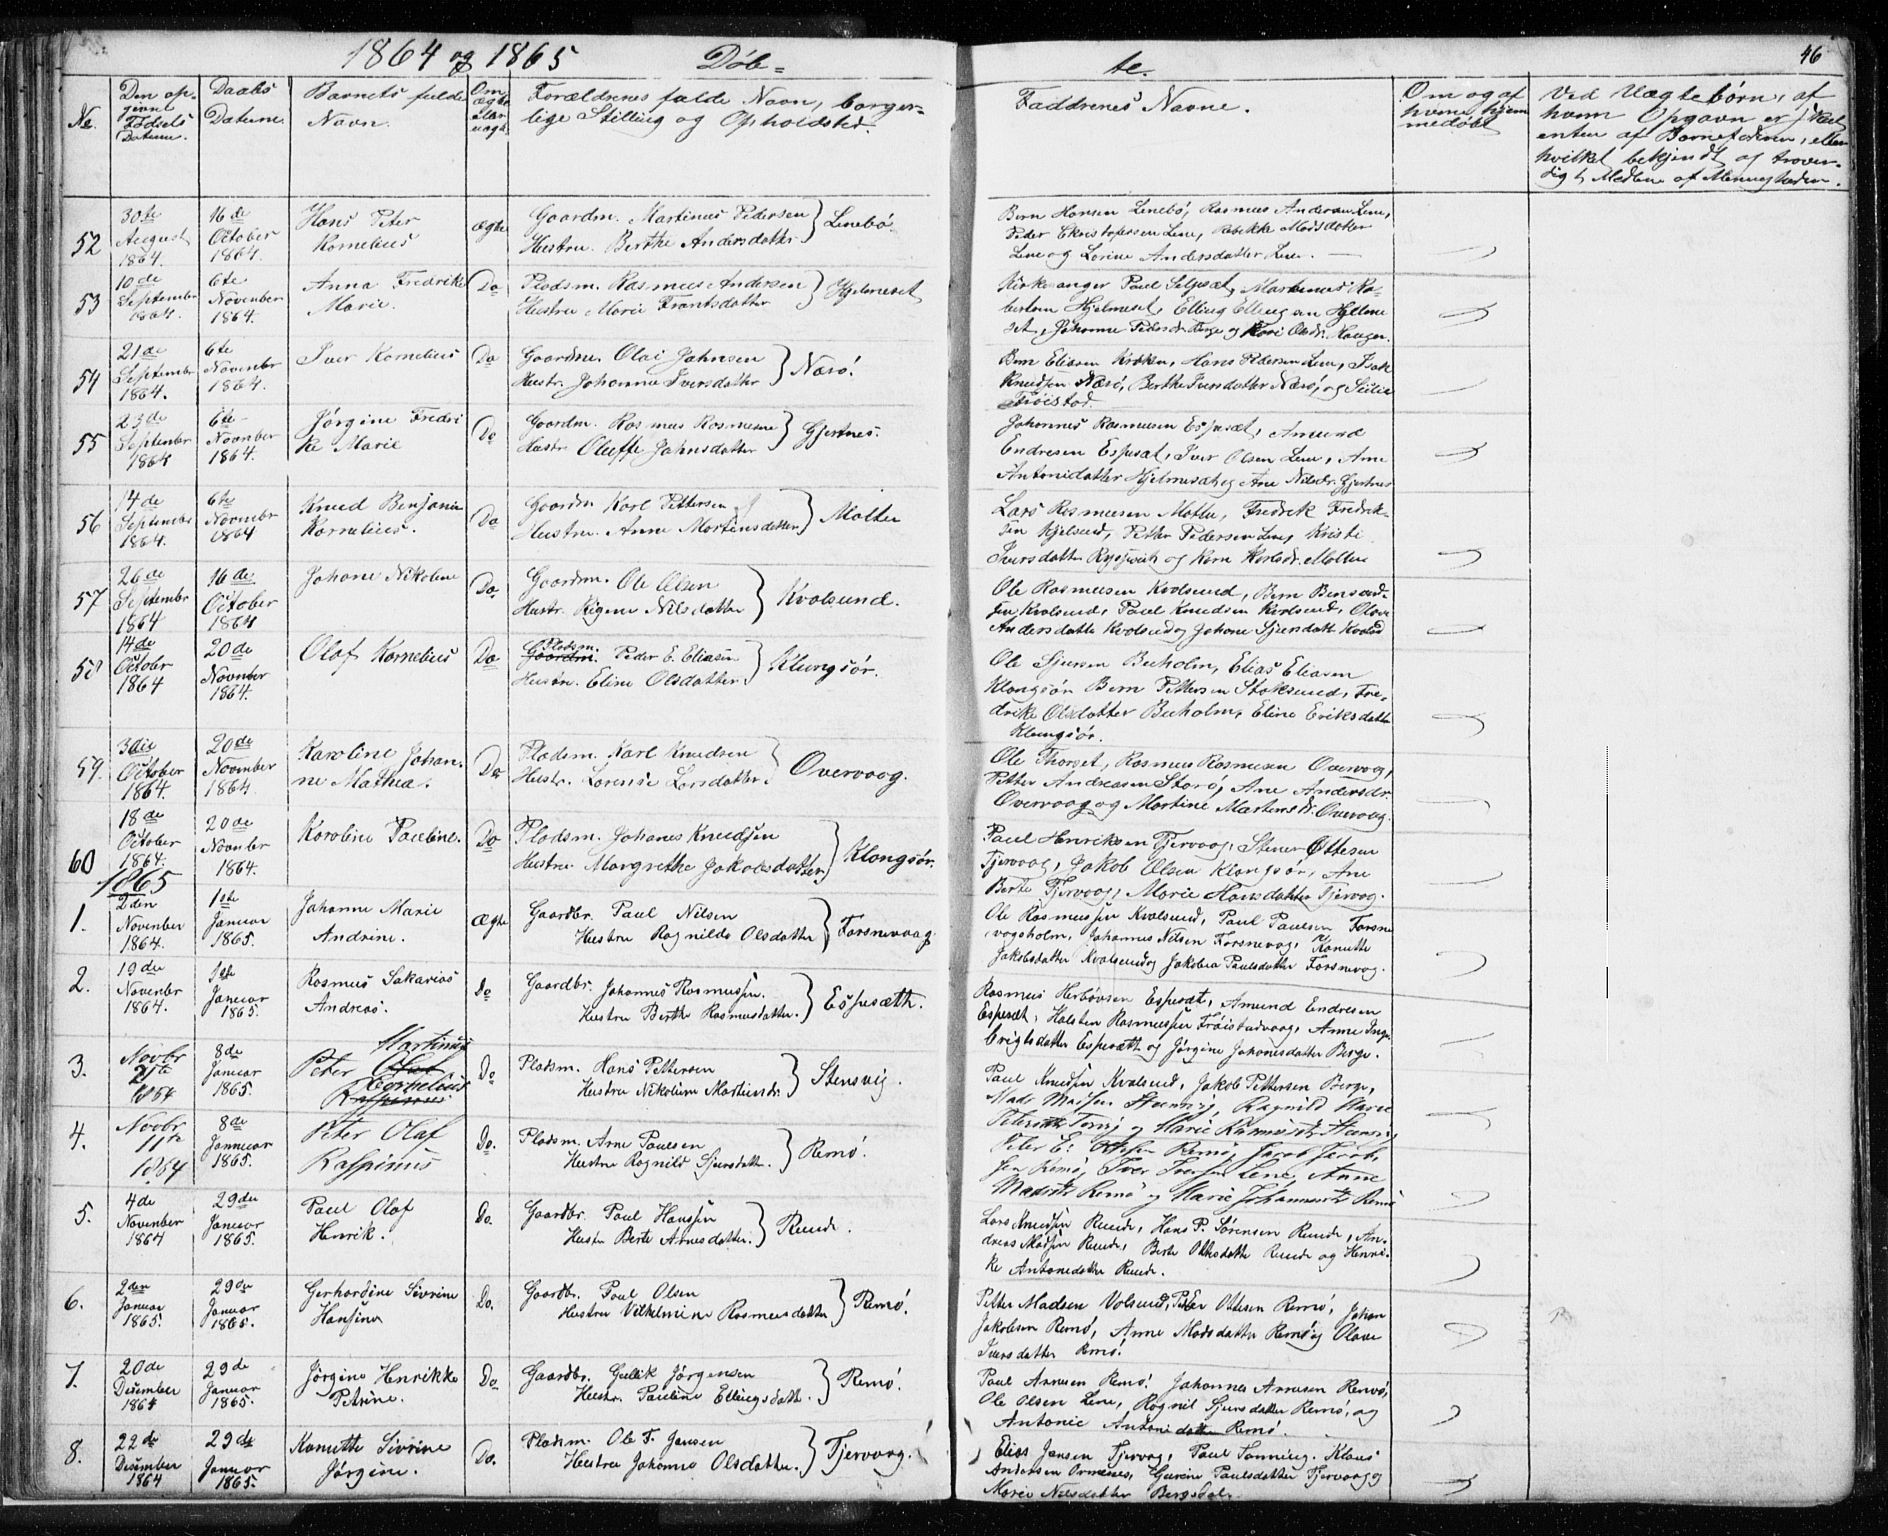 1864 og 1865 Døb= te. 46
No. Den op- givne Fødsels Datum. Daabs Datum. Barnets fulde Navn. Om ægte eller uægte Forældrenes fulde Navn, borger- lige Stilling og Opholdsted. Faddrenes Navne. Om og af hvem hjem- medøbt Ved Uægtebørn, af hvem Opgavn er
enten af Barnefaderen, eller
hvilket bekjendt og trovær-
digt Medlem af Menigheden.
52 30te August 1864. 16de October 1864. Hans Peter Kornelius ægte Gaardm. Martinus Pedersen
Hustru Berthe Andersdatter } Lenebø
Bern Hansen Lenebø, Rasmus Andersen Lene,
Peder Christophersen Lene, Rebekke Madsdatter
Lene og Lorine Andersdatter Lene.
53 10de September 1864. 6te November 1864. Anna Fredrike Marie. Do Pladsm. Rasmus Andersen
Hustru Marie Frantsdatter } Hjelmeset
Kirkesanger Paul Selsæt, Martinus Ra-
Hjelmeset, Elling Hjelme
set, Johanne Pedersdr. Berge og Kari Olsdr. Haugen.
54 21de September 1864. 6te November 1864. Iver Kornelius Do Gaardm. Olai Jahnsen
Hustr. Johanne Iversdatter } Nærø.
Bern Eliasen Kroken, Hans Pedersen Lene, Isak
Knudsen Nærø, Berthe Iversdatter Nærø, og
Frøistad.
55 23de September 1864 6te November 1864. Jørgine Fredri ke Marie Do Gaardm. Rasmus Rasmusen
Hustr Oluffe Jahnsdatter } Gjertnes.
Johannes Rasmusen Espesæt, Amund
Endresen Espesæt, Iver Olsen Lene, Ane
Antonidatter Hjelmesæt og Ane Nilsdr. Gjertnes
56 14de September 1864. 6te November 1864 Knud Benjamin Kornelius. Do Gaardm Karl Pettersen
Hustru Anne Martinsdatter } Molten
Lars Rasmusen Molte, Fredrik Fredrik-
sen Kjelsund, Petter Pedersen Lene, Kristi
Iversdatter og Karn Karlsdr. Molten
57 26de September 1864 16de October 1864 Johane Nikoline Do. Gaardm. Ole Olsen
Hustr. Rigene Nilsdatter } Kvalsund.
Ole Rasmusen Kvalsund, Bern
sen Kvalsund, Paul Knudsen Kvalsund, Olave
Andersdatte Kvalsund og Johane Sjursdatt Kvalsd
58 14de October 1864 20de November 1864. Olaf Kornelius Do Pladsm.
Gaardm. Peder E. Eliasen
Husm. Eline Olsdatter } Klungsør.
Ole Sjursen Buholm, Elias Eliasen
Klongsør Bern Pettersen Stoksund, Fre-
drike Olsdatter Buholm, Eline Eriksdatter
Klungsør.
59. 3die October 1864. 20de November 1864. Karoline Johan- ne Mathea. Do Pladsm. Karl Knudsen
Hustr. Lorense Larsdatter. } Overvaag.
Ole Thorset, Rasmus Rasmusen Overvaag,
Petter Andreasen Storø, Ane Andersdr.
Overvaag og Martine Martensdr. Overvaag.
60 18de October 1864. 20de November 1864. Karoline Pauline. Do Pladsm. Johanes Knudsen
Hustru Margrethe Jakobsdatter } Klongsør.
Paul Henriksen Tjervaag, Stener Ottesen
Tjervaag, Jakob Olsen Klongsør, Ane
Berte Tjervaag, Marie Hansdatter Tjervaag.
1865
1. 2den November 1864. 1ste Januar 1865. Johanne Marie Andrine. Ægte Gaardbr. Paul Nilsen
Hustru Ragnilde Olsdatter } Forsnevaag
Ole Rasmussen Kvalsund, Paul Paulsen Forsne
vagsholm, Johannes Nilsen Forsnevag, Kanutte
Jakobsdatter Kvalsund og Jakobea Paulsdatter Forsnevag.
2. 19de Novenbr 1864. 1ste Januar 1865. Rasmus Sakarias Andreas. Do Gaardbr. Johannes Rasmussen.
Hustru Berthe Rasmusdatter. } Espesæth.
Rasmus Herbøvsen Espesæt, Amund Endresen
Espesæt, Halsten Rasmussen Frøistadvaag, Anne Inge
brigtsdatter Espesætt og Jørgine Johanesdatter Berge.
3. Novbr 21te 1864 8de Januar 1865. Martinus
Peter Olaf
Cornelius
Raspinus Do Pladsm. Hans Pettersen
Hustru Nikoline Martinsdr. } Stensvig.
Paul Knudsen Kvalsund, Jakob Pettersen Berge,
Mads Madsen Stensvig, Ragnild Marie
Petersdtr og Marie Rasmusdtr Stensvig
4. Novbr 11te 1864 8de Jannuar 1865. Peter Olaf Raspinus Do. Pladsm. Arne Paulsen
Hustru Ragnild Sjursdatter. } Remø.
Peter E. Ottesen Remø, Jacob Jacob-
sen Remø, Iver Iversen Lene, Anne
Madsdtr Remø og Marie Johannesdtr Remø
5. 4de November 1864 29de Januar 1865. Paul Olaf Henrik. Do. Gaardbr. Paul Hanssen
Hustr Berte Arnesdatter. } Runde.
Lars Knudsen Runde, Hans P. Sørensen Runde, An-
dreas Madsen Runde, Berte Ottesdatte Runde og Henri-
ke Antonedatter Runde.
6. 2den Januar 1865. 29de Januar 1865. Gerhardine Sivrine Hansine Do. Gaardbr. Paul Olsen
Hustru Vilhelmine Rasmusdatter } Remø.
Petter Madsen Volsund, Peter Ottesen Remø, Johan
Jakobsen Remø, Anne Madsdatter Remø og Olave
Iversdatter Remø.
7. 20de Desember 1864 29de Januar 1865. Jørgine Henrikke Petrine. Do Gaardbr. Gullik Jørgensen
Hustr. Pauline Ellingsdatt. } Remø.
Paul Arnesen Remø. Johannes Arnesen Remø,
Ole Olsen Lene, Ragnil Sjursdatter Remø, og
Antonie Antonidatter Remø.
8. 22de Desember 1864 29de Januar 1865. Kanutte Sivrine Jørgine. Do. Pladsm. Ole F. Jansen
Hustru Johanna Olsdatter. } Tjervaag.
Elias Jansen Tjervaag, Paul Klaus
Andersen Ormenes, Gurine Paulsdatter Tjervaag og
Marie Nilsdatter Bergsdal.